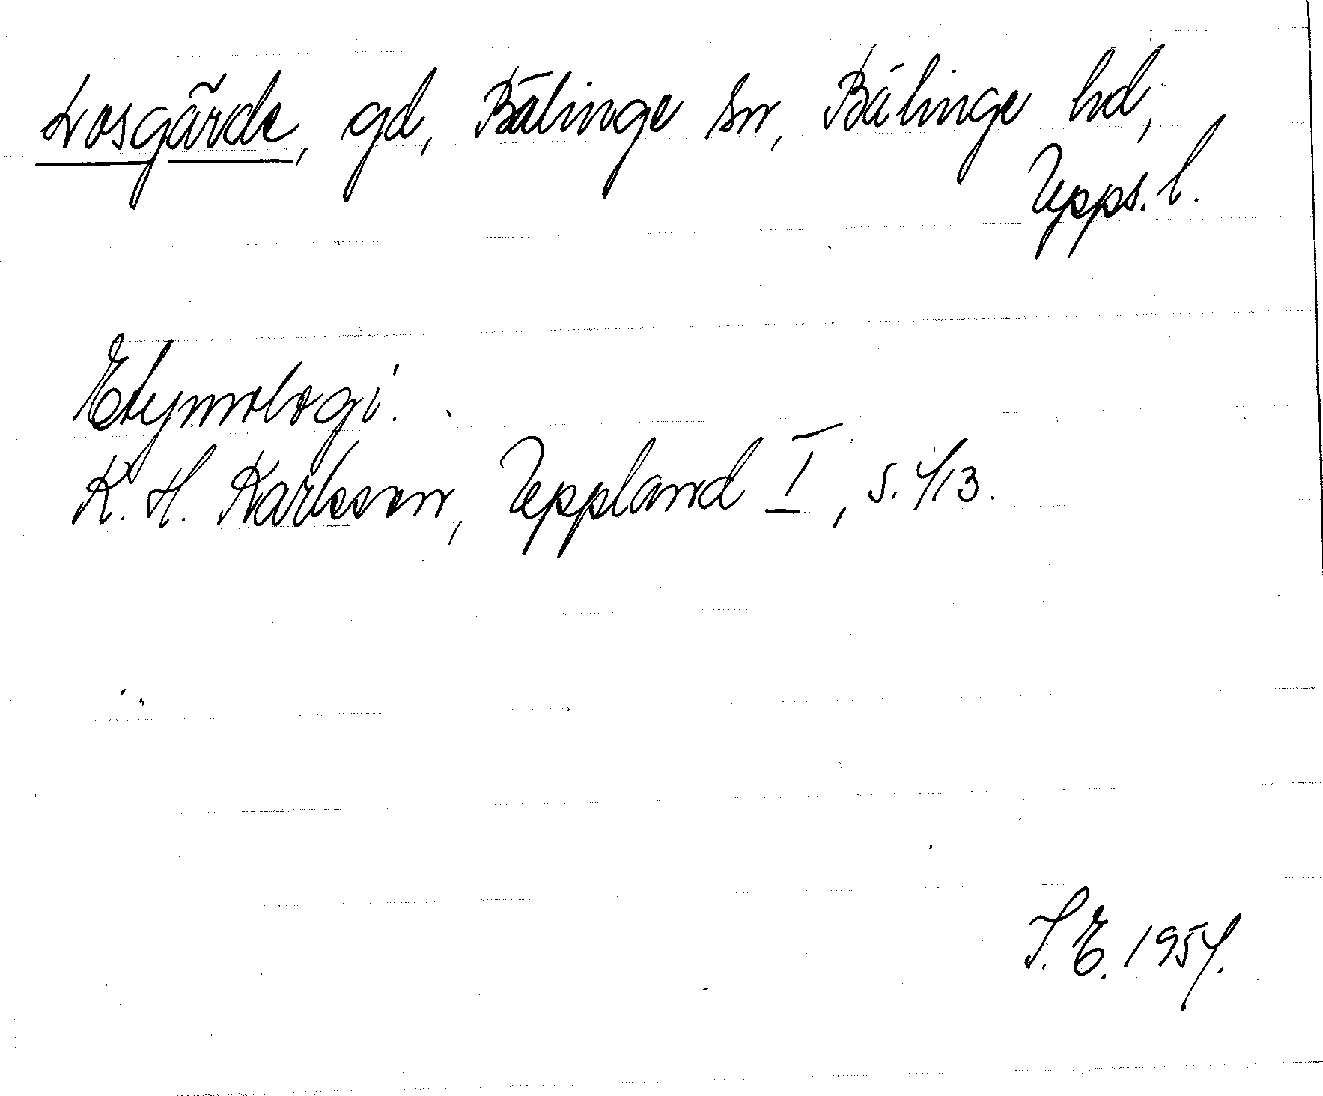 Losgärde, gd, Bälinge sn, Bälinge hd,
Upps. l.
Etymologi.
K. H. Karlsson, Uppland I, s. 413.
S. E. 1954.